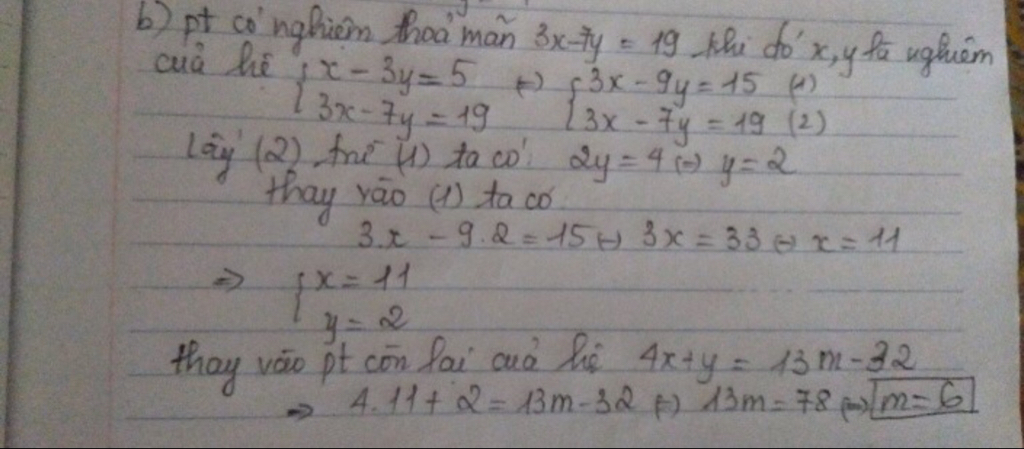 b) pt có nghiệm thoả mãn 3x-7y = 19 khi đó x, y là nghiệm
của hệ { x - 3y = 5 (=) { 3x - 9y = 15 (1)
3x - 7y = 19 3x - 7y = 19 (2)
Lấy (2) trừ (1) ta có: 2y = 4 (=) y = 2
thay vào (1) ta có
3.x - 9.2 = 15 (=) 3x = 33 (=) x = 11
=> { x = 11
y = 2
thay vào pt còn lại của hệ 4x+y = 13m - 32
=> 4.11 + 2 = 13m - 32 (=) 13m = 78 (=) m = 6